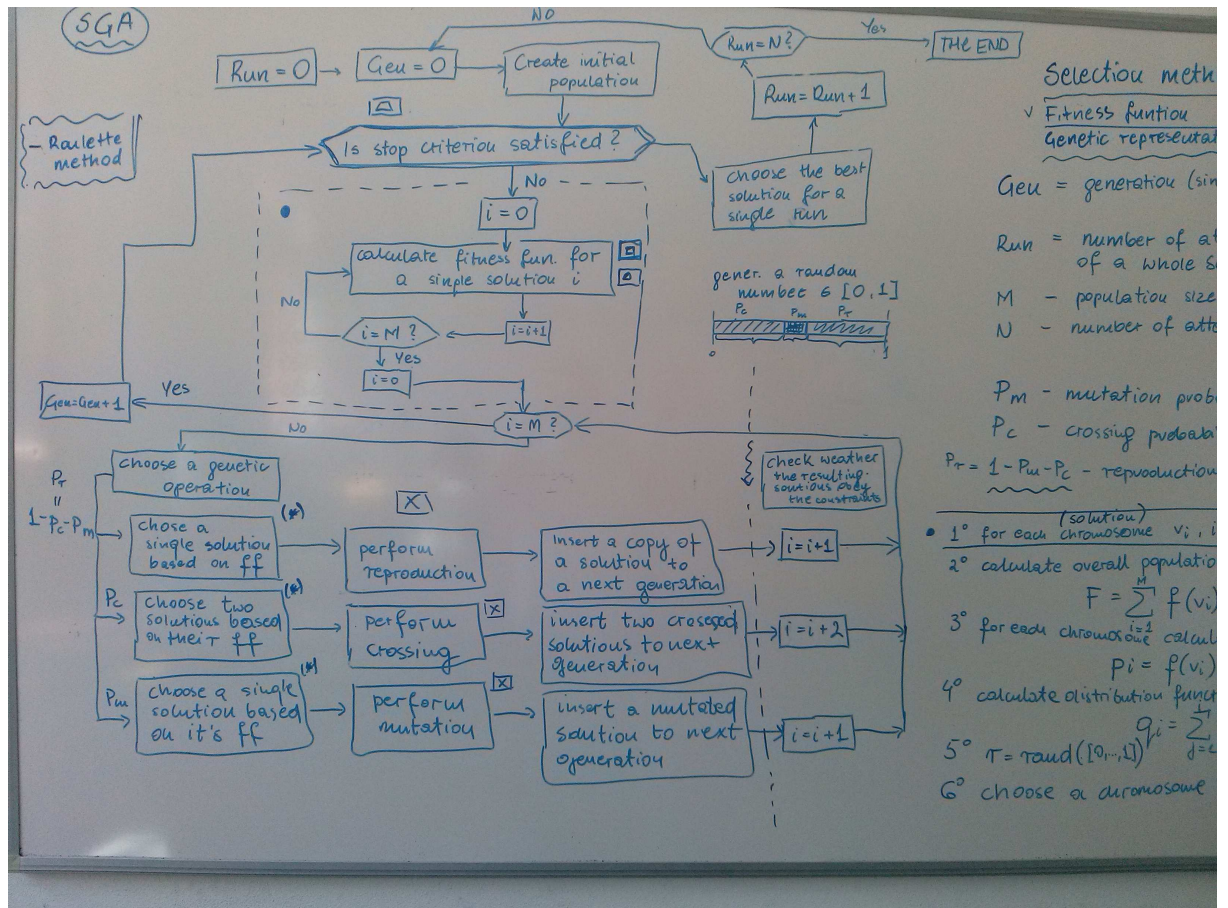 SGA
NO
Yes
Run = 0
Geu = 0
Create initial
population
Run=N?
THE END
Run=Run+1
– Roulette
method
Is stop criterion satisfied?
No
choose the best
solution for a
single run
i=0
calculate fitness fun. for
a sinple solution i
No
i=M?
i=i+1
Yes
i=0
gener. a random
number ∈ [0,1]
Pc
Pm
Pr
0
1
Geu=Geu+1
Yes
i=M?
No
choose a genetic
operation
Pr
=
1-Pc-Pm
check weather
the resulting
soutious obey
the constraints
(*)
chose a
single solution
based on ff
X
perform
reproduction
insert a copy of
a solution to
a next generation
i=i+1
Pc
(*)
Choose two
solutions based
on their ff
X
perform
crossing
insert two crossed
solutions to next
generation
i=i+2
Pm
(*)
choose a single
solution based
on it's ff
X
perform
mutation
insert a mutated
solution to next
generation
i=i+1
Selection meth
v Fitness funtion
Genetic representat
Geu = generation (sin
Run = number of at
of a whole s
M – population size
N – number of atte
Pm – mutation prob
Pc – crossing probabi
Pr = 1-Pm-Pc – reproduction
(solution)
• 1° for each chromosome vi, i
2° calculate overall populatio
F = Σ f(vi)
M
i=1
3° for each chromosome calcul
pi = f(vi)
4° calculate distribution funct
qi = Σ
5° r = rand([0,..,1])
6° choose a chromosome